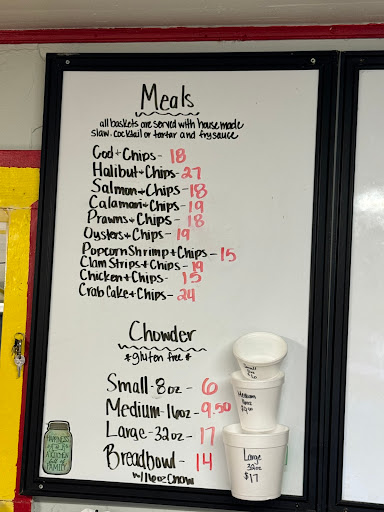 Meals
all baskets are served with housemade
slaw. cocktail or tartar and frysauce
Cod + Chips - 18
Halibut + Chips - 27
Salmon + Chips - 18
Calamari + Chips - 19
Prawns + Chips - 18
Oysters + Chips - 19
Popcorn Shrimp + Chips - 15
Clam Strips + Chips - 19
Chicken + Chips - 15
Crab Cake + Chips - 24
Chowder
*gluten free*
Small - 8oz - 6
Medium - 16oz - 9.50
Large - 32oz - 17
Breadbowl - 14
w/ 16oz Chow
Small
Medium
16oz
$9.50
Large
32oz
$17
HAPPINESS
A KITCHEN
FULL OF
FAMILY